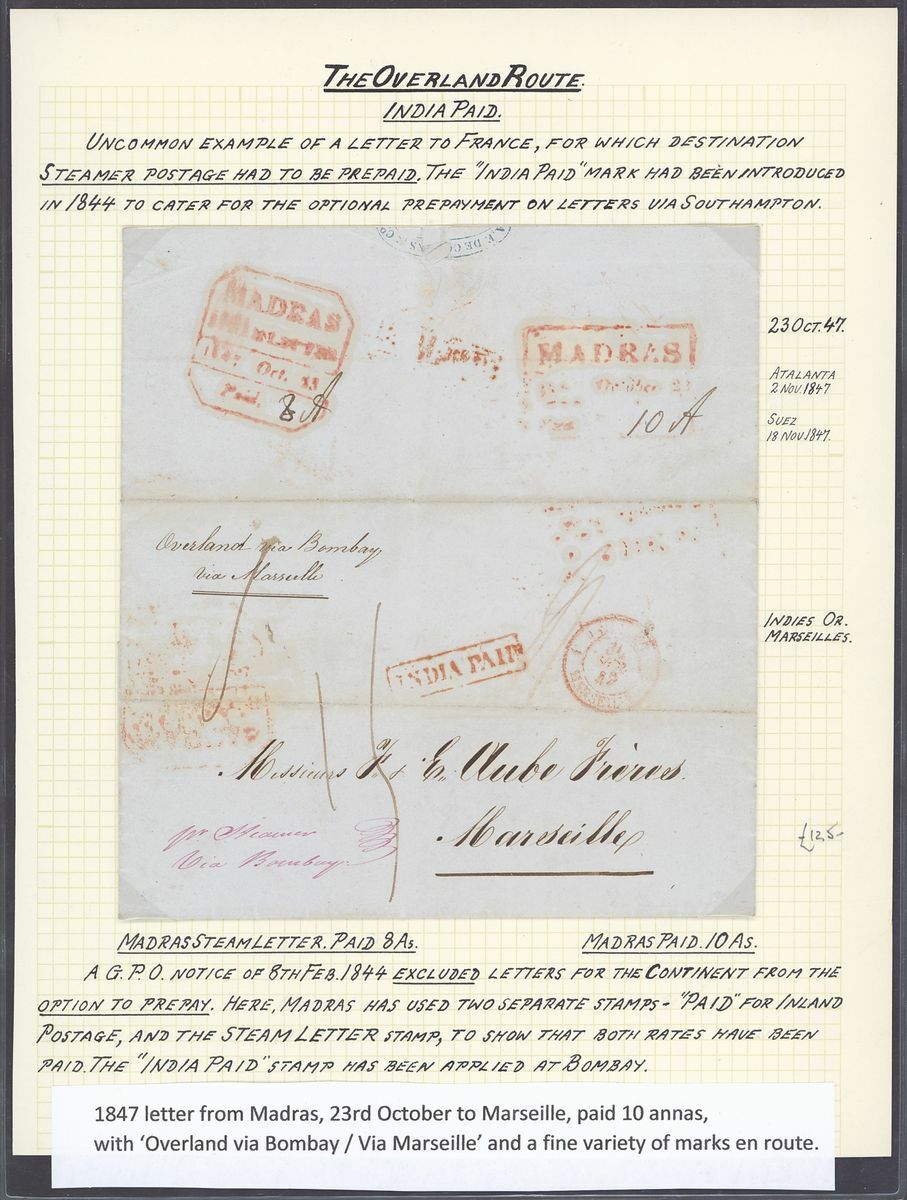 THE OVERLAND ROUTE.
INDIA PAID.
UNCOMMON EXAMPLE OF A LETTER TO FRANCE, FOR WHICH DESTINATION
STEAMER POSTAGE HAD TO BE PREPAID. THE "INDIA PAID" MARK HAD BEEN INTRODUCED
IN 1844 TO CATER FOR THE OPTIONAL PREPAYMENT ON LETTERS VIA SOUTHAMPTON.
MADRAS
Oct. 23
Paid. 8 A
MADRAS
October 23
10 A
23 OCT. 47.
ATALANTA
2 NOV. 1847
SUEZ
18 NOV. 1847.
Overland via Bombay
via Marseille
INDIA PAID
INDIES OR.
MARSEILLES.
Messieurs F. & E. Aube Frères.
Marseille
pr Steamer
Via Bombay
£125-
MADRAS STEAM LETTER. PAID 8 AS.
MADRAS PAID. 10 AS.
A G.P.O. NOTICE OF 8TH FEB. 1844 EXCLUDED LETTERS FOR THE CONTINENT FROM THE
OPTION TO PREPAY. HERE, MADRAS HAS USED TWO SEPARATE STAMPS - "PAID" FOR INLAND
POSTAGE, AND THE STEAM LETTER STAMP, TO SHOW THAT BOTH RATES HAVE BEEN
PAID. THE "INDIA PAID" STAMP HAS BEEN APPLIED AT BOMBAY.
1847 letter from Madras, 23rd October to Marseille, paid 10 annas,
with ‘Overland via Bombay / Via Marseille’ and a fine variety of marks en route.